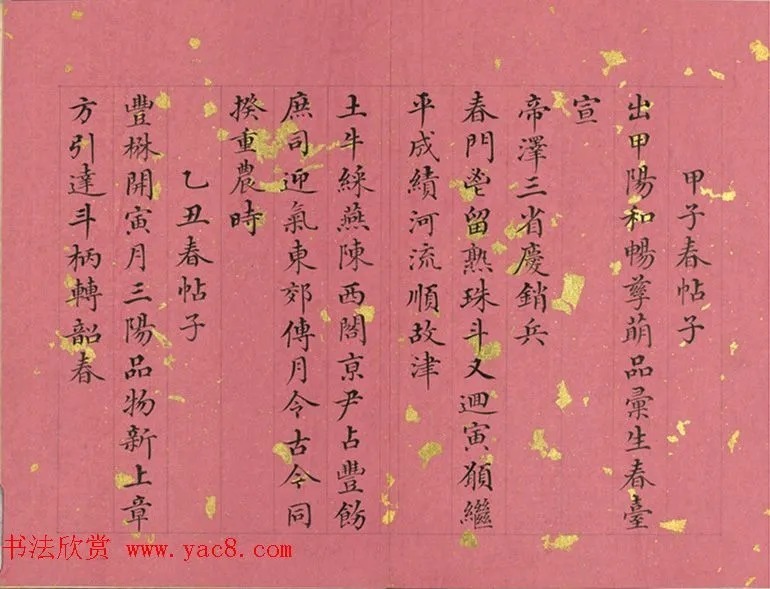 甲子春帖子
出甲陽和暢孳萌品彙生春臺
宣
帝澤三省慶銷兵
春門鬯留熟珠斗又迴寅願繼
平成績河流順故津
土牛綵燕陳西閤京尹占豐飭
庶司迎氣東郊傳月令古今同
揆重農時
乙丑春帖子
豐楙開寅月三陽品物新上章
方引達斗柄轉韶春
书法欣赏 www.yac8.com